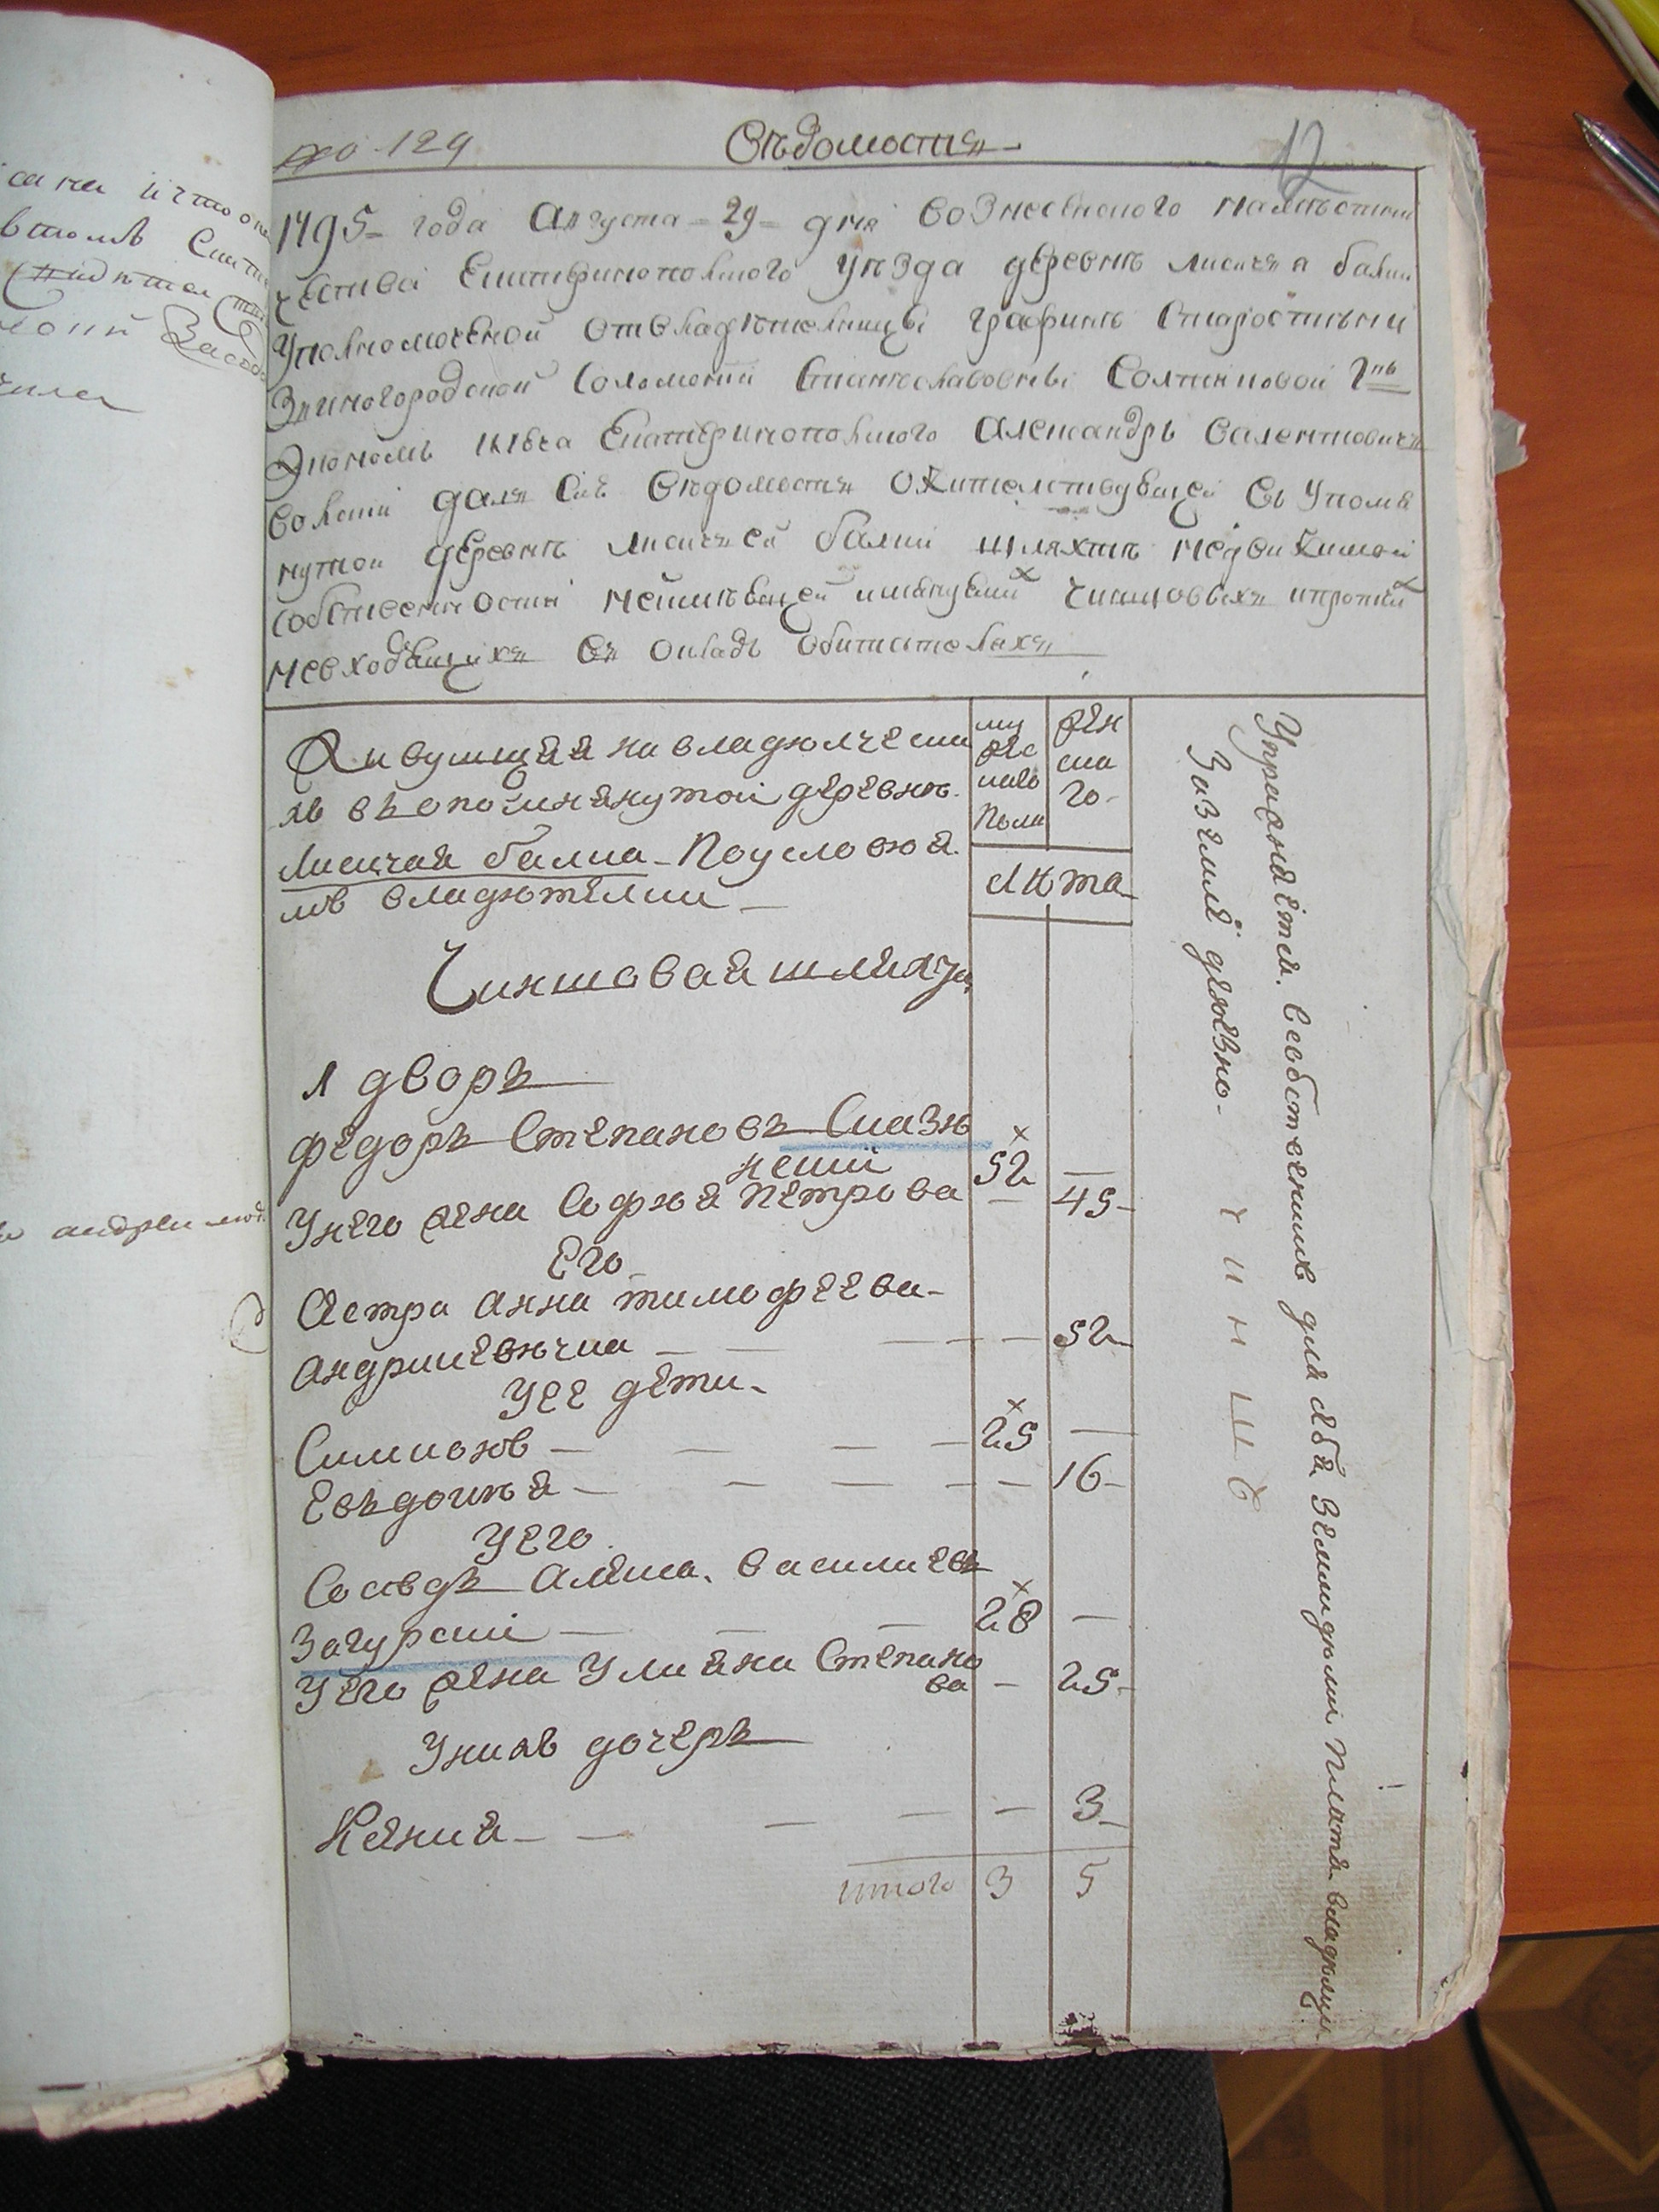 по 129
Вѣдомостья
12
1795 года Августа 29 дня Вознесенского намѣстни
чества Екатеринополского уѣзда деревнѣ лисичья балки
Уполномоченой отвладѣтелницы графинѣ Старостыни
Звиногородской Соломѣи Станиславовны Солтиковой
Экономъ Екатеринополского Александръ Валентовичъ
далъ сию вѣдомостъ ожителствующей въ упомя
нутой деревнѣ лисичьей балки шляхтѣ недвижимой
собственности неимѣющей чиншовыхъ ипротчих
невходящихъ въ окладъ обитателахъ
Живущая на владелчески
хъ въ опомянутой деревнѣ
Лисичая балка Поусловоя
мъ владетелми
му жес каго пола
жен ска го
Лѣта
Чиншовая шляхта
1 дворъ
Федоръ Степановъ Скази
нский 52
Унего жена София Петрова 45
Его
Сестра Анна тимофеева
Андриевичка 52
Уее дети
Симионъ 25
Евъдокия 16
Уего
Сосѣдъ Алекса Василиевъ
Загурский 28
Уего жена Улияна Степано
ва 25
Унихъ дочеръ
Ксения 3
итого 3 5
Упражняется всобственныхъ для себя земледелии платя владелцу
За землѣ денежно
чиншъ
андреи